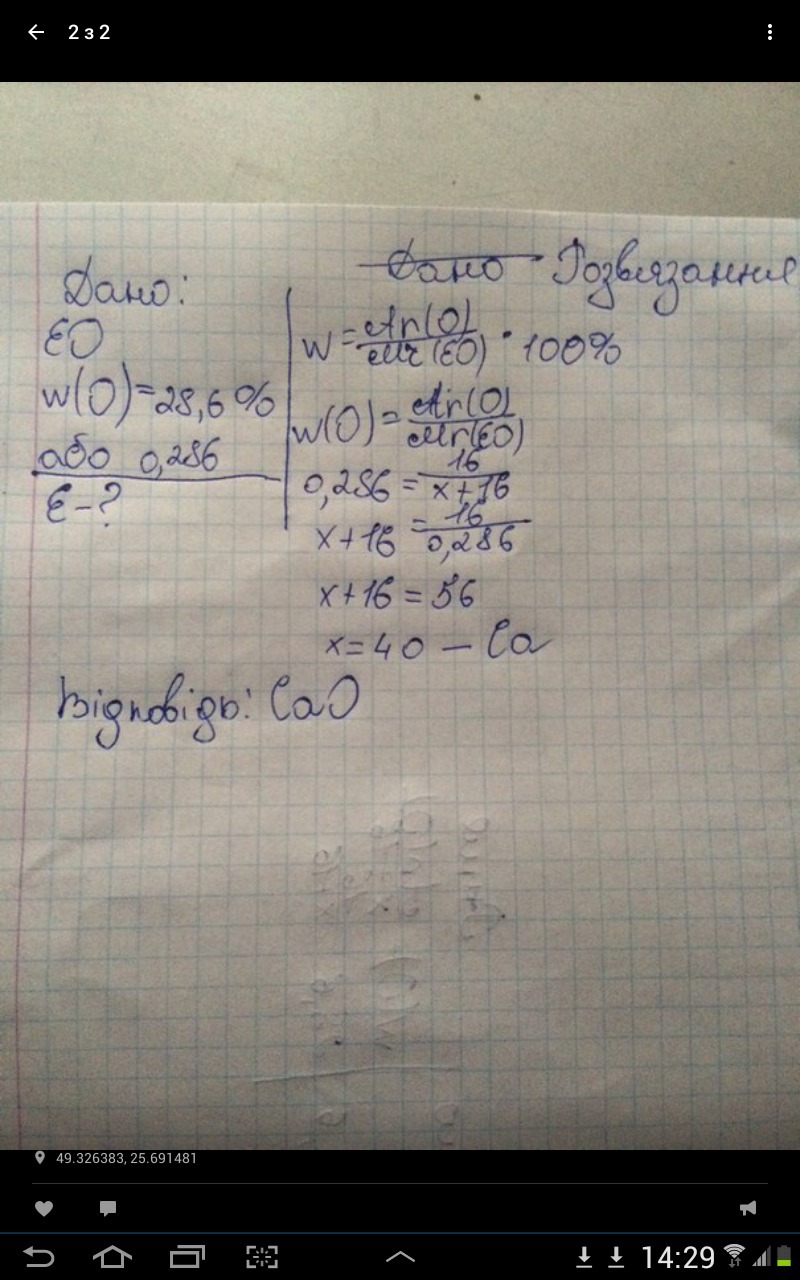 2 з 2
Дано Розвязання
Дано:
EO
w(O)=28,6%
або 0,286
E-?
w = Ar(O)/Mr(EO) · 100%
w(O) = Ar(O)/Mr(EO)
0,286 = 16/x+16
x+16 = 16/0,286
x+16 = 56
x=40 – Ca
Відповідь: CaO
49.326383, 25.691481
14:29